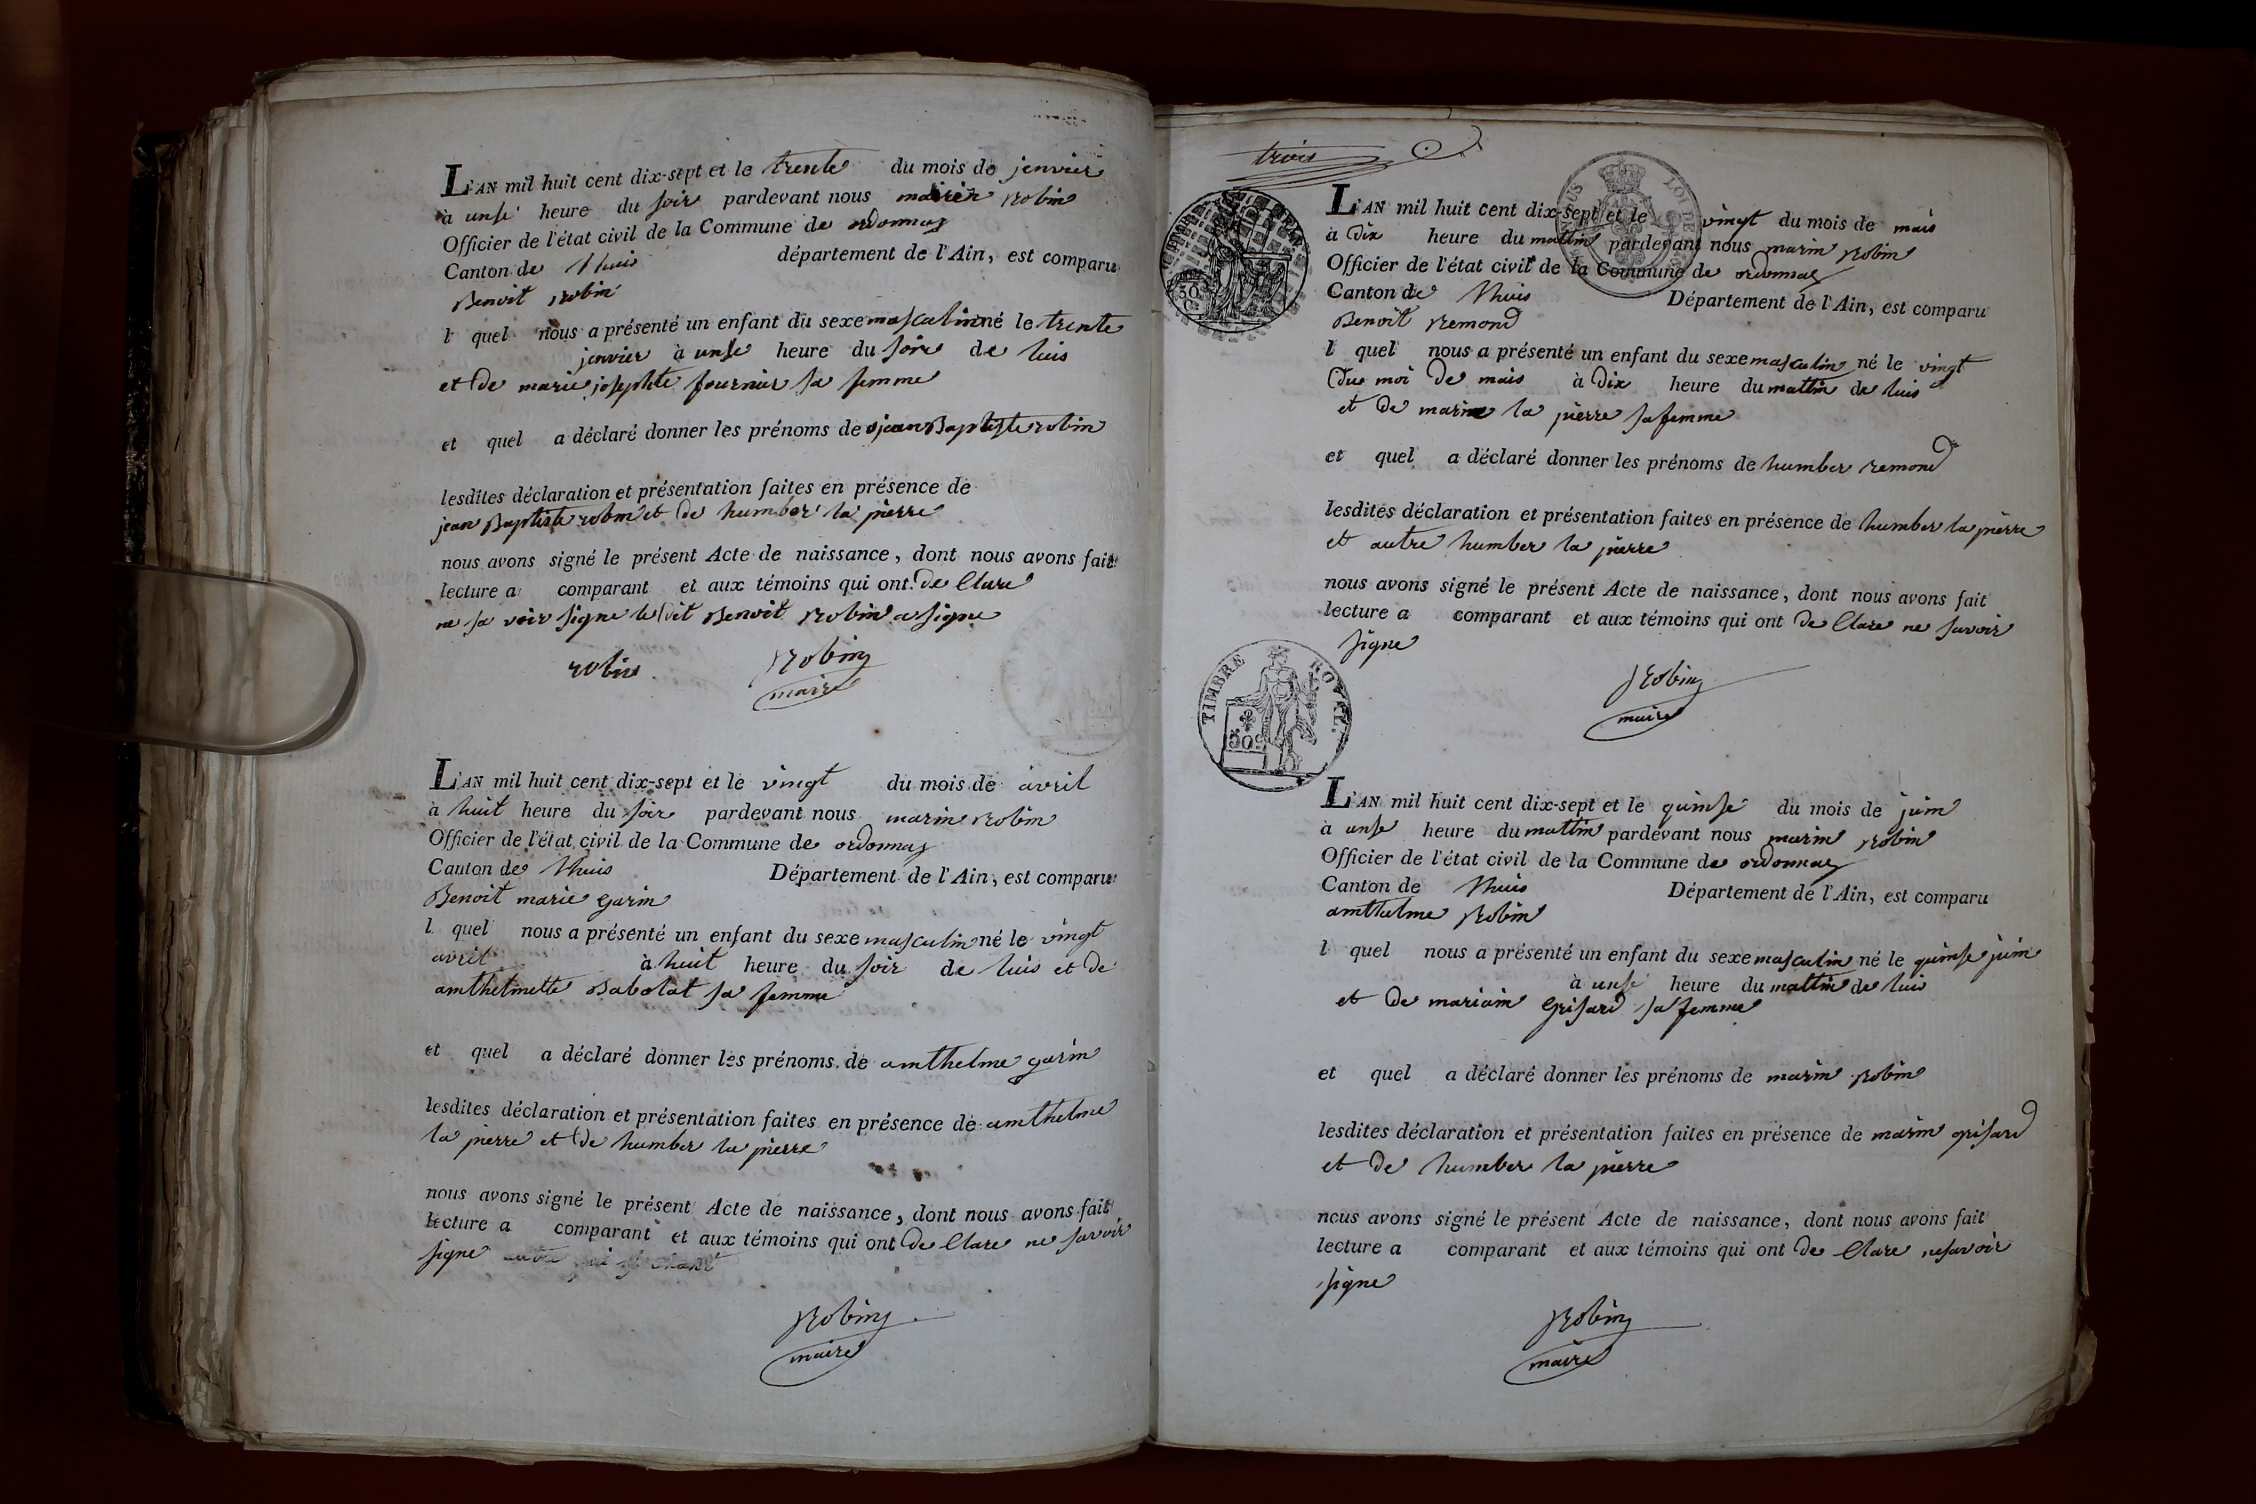 L'AN mil huit cent dix-sept et le trente du mois de jenvier
à unse heure du soir pardevant nous marin Robin
Officier de l'état civil de la Commune de ordonnaz
Canton de Lhuis département de l'Ain, est comparu
Benoit Robin
l quel nous a présenté un enfant du sexe masculin né le trente
jenvier à unse heure du soir de luis
et de marie josephte fournier sa femme
et quel a déclaré donner les prénoms de jean Baptiste robin
lesdites déclaration et présentation faites en présence de
jean Baptiste robin et de humber la pierre
nous avons signé le présent Acte de naissance, dont nous avons fait
lecture a comparant et aux témoins qui ont de Clare
ne sa voir signe le dit Benoit Robin a signe
robin Robin
maire
L'AN mil huit cent dix-sept et le vingt du mois de avril
à huit heure du soir pardevant nous marin Robin
Officier de l'état civil de la Commune de ordonnaz
Canton de Lhuis Département de l'Ain, est comparu
Benoit marie garin
l quel nous a présenté un enfant du sexe masculin né le vingt
avril à huit heure du soir de luis et de
amthelmette Babolat sa femme
et quel a déclaré donner les prénoms de amthelme garin
lesdites déclaration et présentation faites en présence de amthelme
la pierre et de humber la pierre
nous avons signé le présent Acte de naissance, dont nous avons fait
lecture a comparant et aux témoins qui ont de Clare ne savoir
signe
Robin
maire
trois
L'AN mil huit cent dix-sept et le vingt du mois de mais
à dix heure du mattin pardevant nous marin Robin
Officier de l'état civil de la Commune de ordonnaz
Canton de Lhuis Département de l'Ain, est comparu
Benoit Remond
l quel nous a présenté un enfant du sexe masculin né le vingt
du moi de mais à dix heure du mattin de luis
et de marie la pierre sa femme
et quel a déclaré donner les prénoms de humber remond
lesdites déclaration et présentation faites en présence de humber la pierre
et autre humber la pierre
nous avons signé le présent Acte de naissance, dont nous avons fait
lecture a comparant et aux témoins qui ont de Clare ne savoir
signe
Robin
maire
TIMBRE ROYAL.
50c
L'AN mil huit cent dix-sept et le quinse du mois de juin
à unse heure du mattin pardevant nous marin Robin
Officier de l'état civil de la Commune de ordonnaz
Canton de Lhuis Département de l'Ain, est comparu
amthelme Robin
l quel nous a présenté un enfant du sexe masculin né le quinse juin
à unse heure du mattin de luis
et de mariain grisard sa femme
et quel a déclaré donner les prénoms de marin Robin
lesdites déclaration et présentation faites en présence de marin grisard
et de humber la pierre
nous avons signé le présent Acte de naissance, dont nous avons fait
lecture a comparant et aux témoins qui ont de Clare ne savoir
signe
Robin
maire